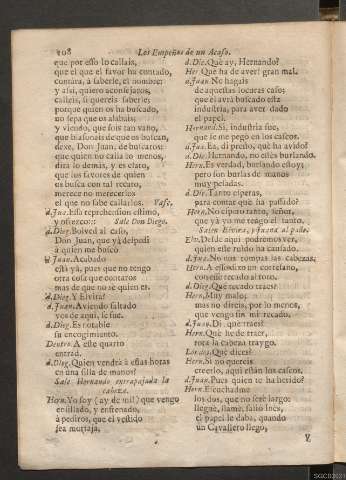 108
Los Empeños de un Acaso.
que por esso lo callais,
que el que el favor ha contado,
contará, à saberle, el nombre:
y assi, quiero aconsejaros,
calleis, si quereis saberle;
porque quien os ha buscado,
no sepa que os alabais;
y viendo, que sois tan vano,
que blasonais de que os buscan,
dexe, Don Juan, de buscaros:
que quien no calla lo menos,
dirà lo demás, y es claro,
que los favores de quien
os busca con tal recato,
merece no merecerlos
el que no sabe callarlos. Vase.
d.Jua. Essa reprehension estimo,
y ofrezco:: Sale Don Diego.
d.Dieg. Bolved al caso,
Don Juan, que yà despedì
à quien me buscò
d.Juan. Acabado
està yà, pues que no tengo
otra cosa que contaros
mas de que no sè quien es.
d.Dieg. Y Elvira?
d.Juan. Aviendo saltado
vos de aqui, se fue.
d.Dieg. Es notable
su encogimiento.
Dentro. A este quarto
entrad.
d.Dieg. Quien vendrà à estas horas
en una silla de manos?
Sale Hernando entrapajada la
cabeza.
Hern. Yo soy (ay de mi) que vengo
ensillado, y enfrenado,
à pediros, que el vestido
sea mortaja,
d.Die. Què ay, Hernando?
Her. Que ha de aver? gran mal.
d.Juan. No hagais
de aquestas locuras caso;
que el avrà buscado esta
industria, para aver dado
el papel.
Hernand. Si, industria fue,
que se me pegò en los cascos.
d.Jua. Ea, di presto, què ha avido?
d.Die. Hernando, no estès burlando.
Hern. Es verdad, burlando estoy;
pero son burlas de manos
muy peladas.
d.Die. Tanto esperas,
para contar què ha passado?
Hern. No espero tanto, señor,
que yà yo me tengo el tanto.
Salen Elvira, y Juana al paño.
Elv. Desde aqui podremos ver,
quien este ruido ha causado.
d.Jua. No nos rompas las cabezas.
Hern. A esso dixo un cortesano,
consuele recado al roto.
d.Dieg. Què recado traes?
Hern. Muy malo;
mas no direis, por lo menos,
que vengo sin mi recado.
d.Juan. Di, que traes?
Hern. Què he de traer,
rota la cabeza traygo.
Los dos. Què dices?
Hern. Si no quereis
creerlo, aqui están los cascos.
d.Juan. Pues quien te ha herido?
Hern. Escuchadme
los dos, que no serè largo:
lleguè, llamè, saliò Inès,
el papel le daba, quando
un Cavallero llegò,
V